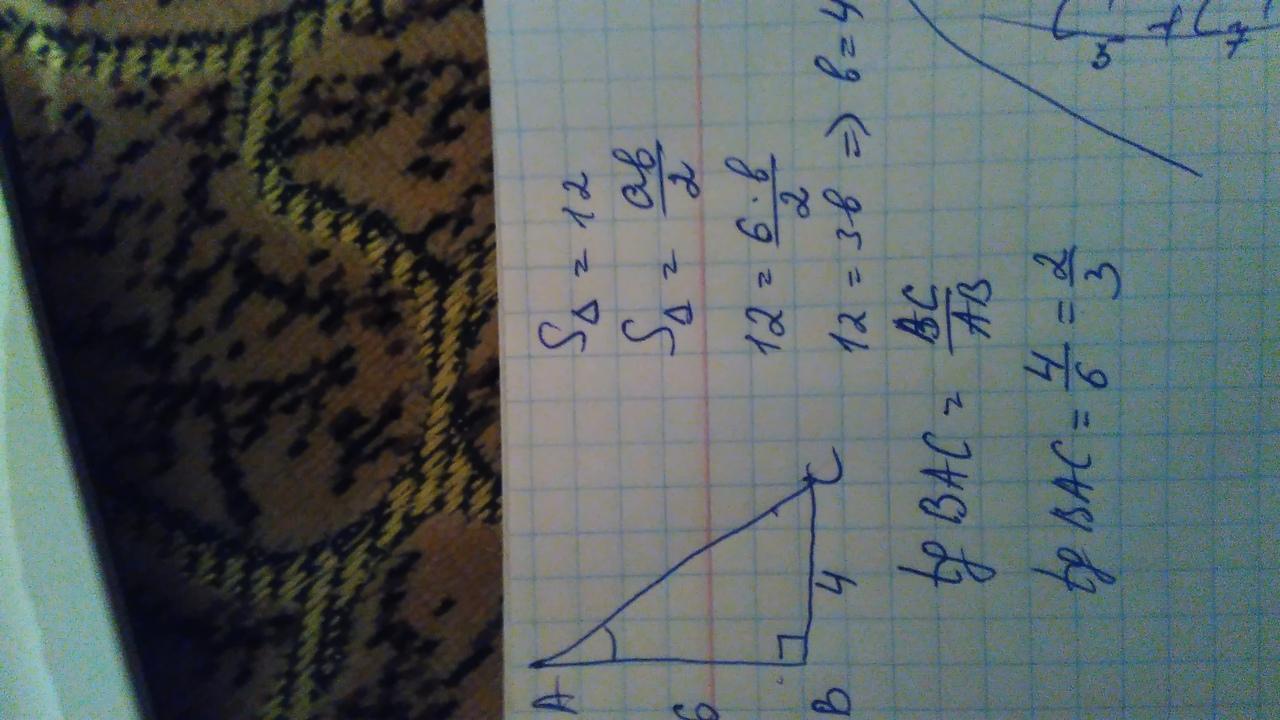 A
6
B
4
C
S△ = 12
S△ = ab/2
12 = 6·b/2
12 = 3b => b = 4
tg BAC = BC/AB
tg BAC = 4/6 = 2/3
7